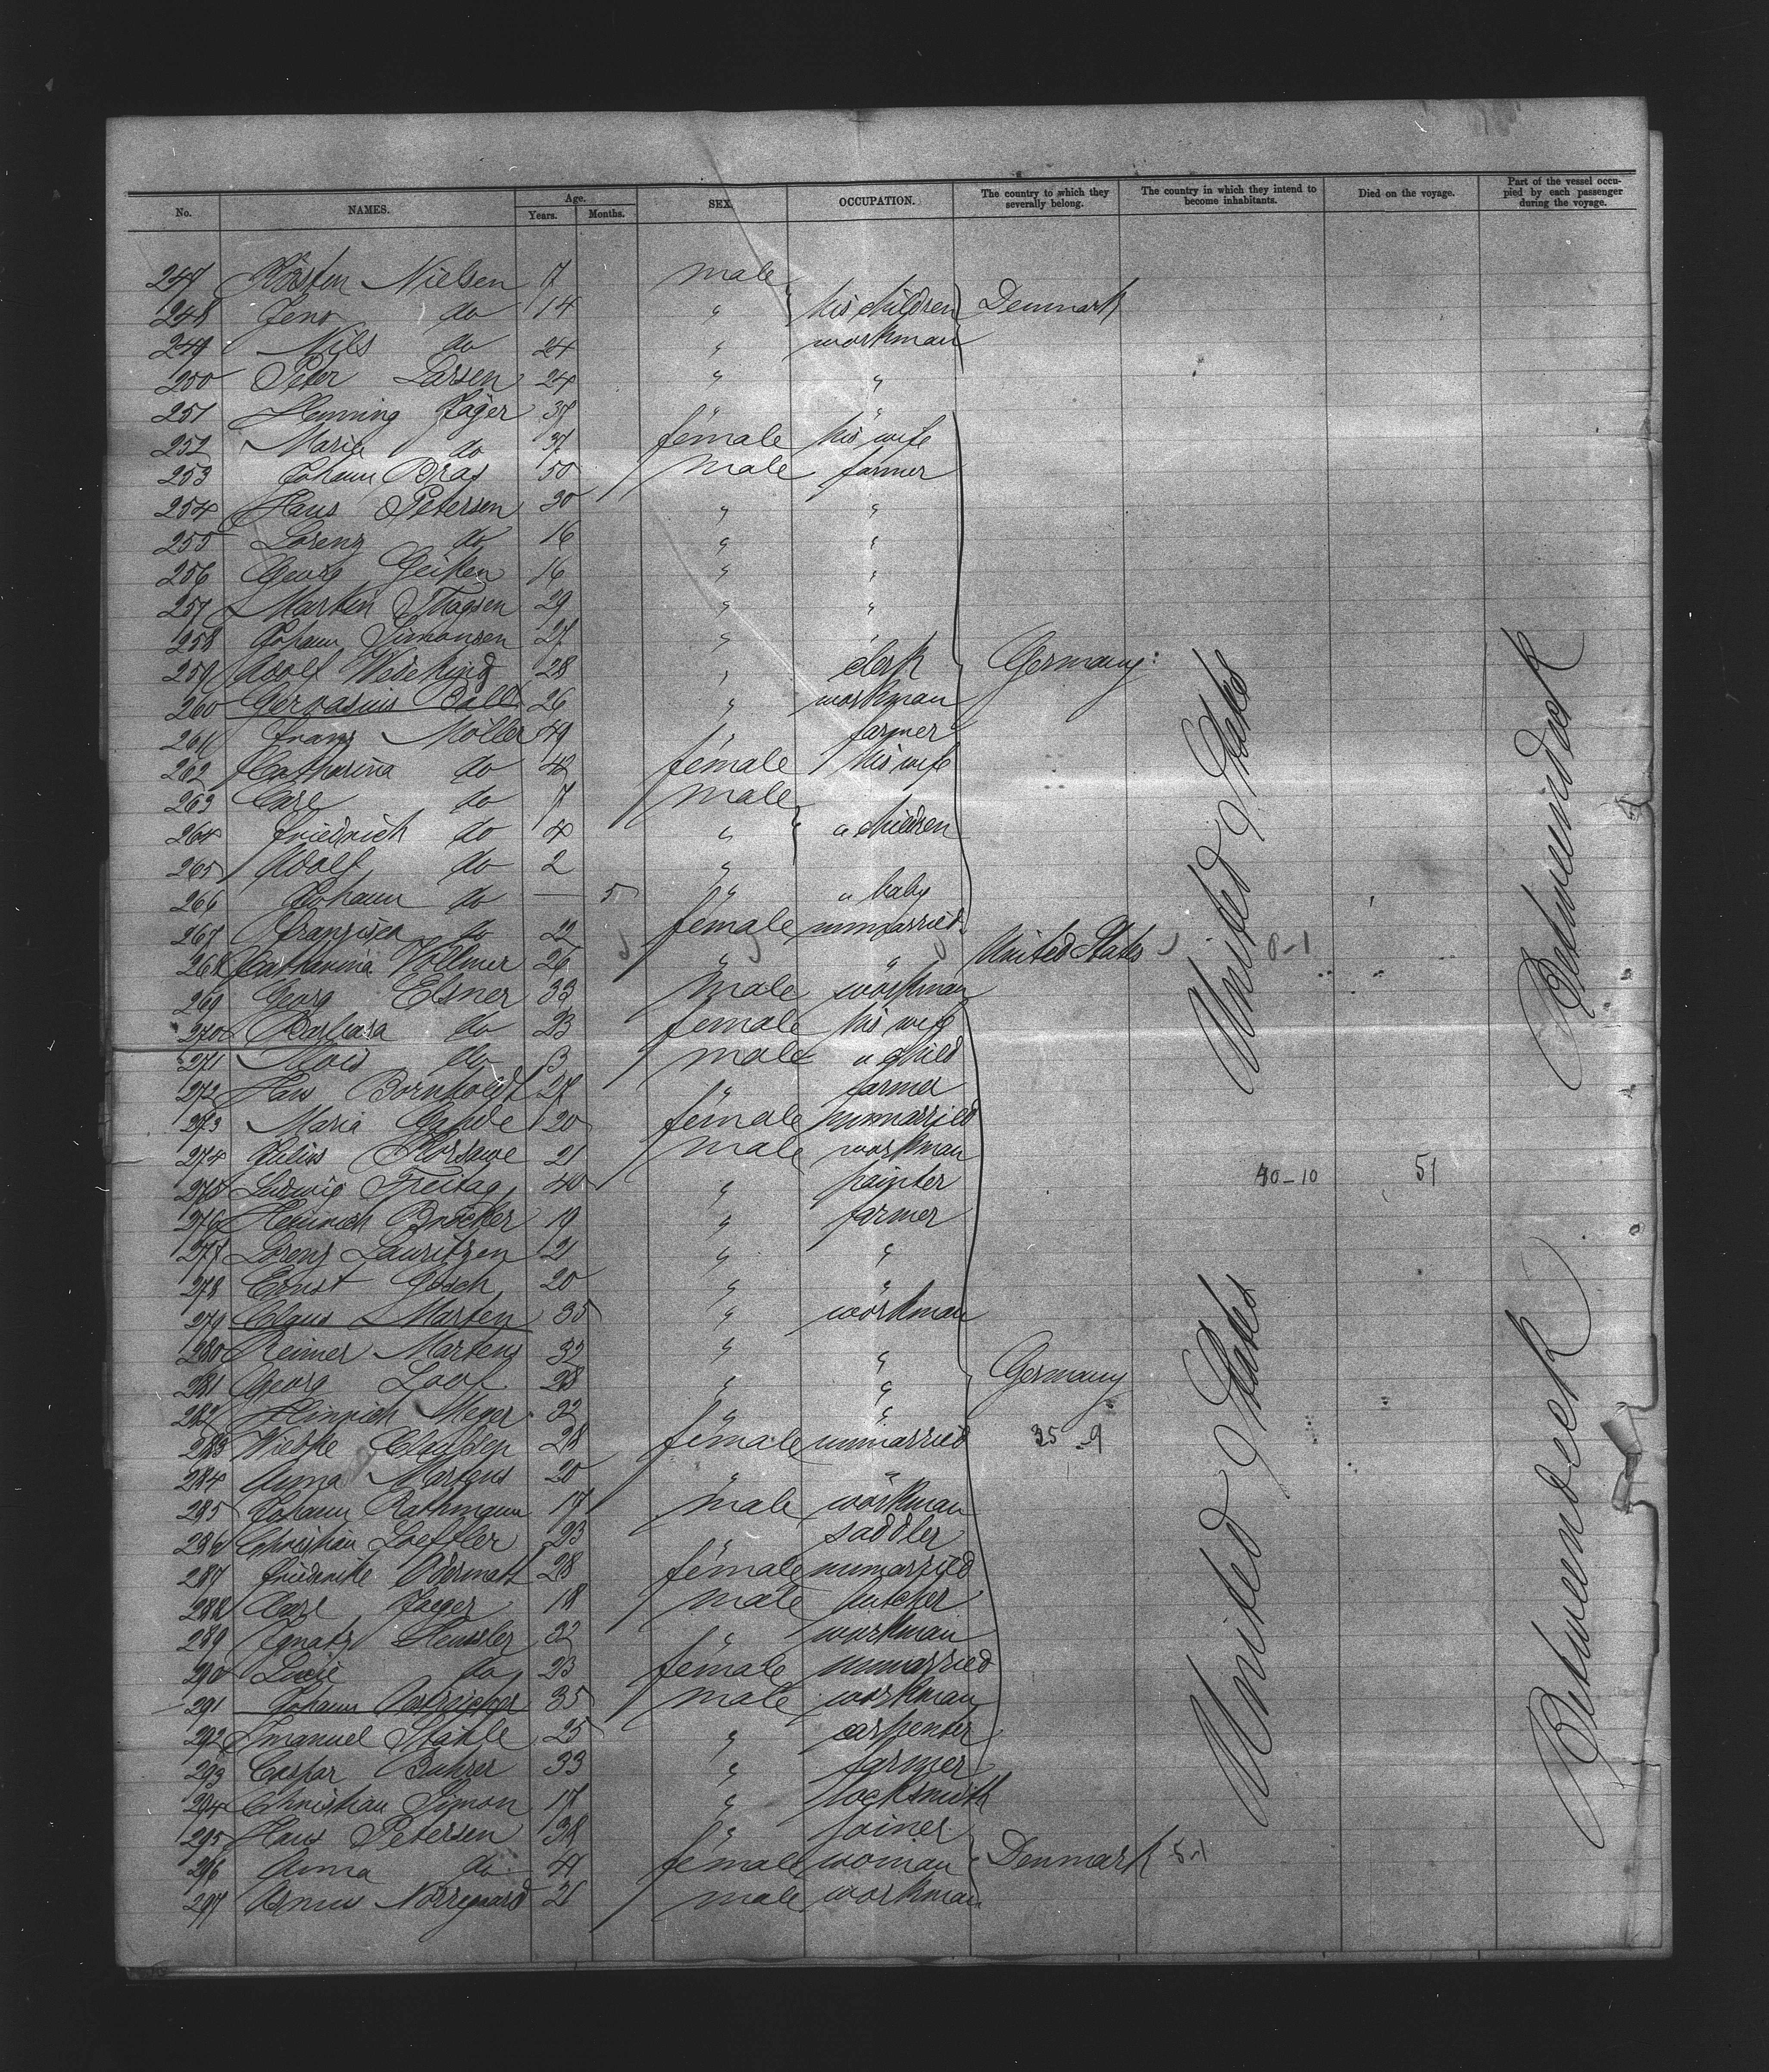 No. NAMES. Age. Years. Months. SEX. OCCUPATION. The country to which they severally belong. The country in which they intend to become inhabitants. Died on the voyage. Part of the vessel occupied by each passenger during the voyage.
247 Nielsen 17 male
248 Jens do 14 " his children Denmark
249 Nils do 24 " workman
250 Peter Larsen 24 " "
251 Henning Jäger 37 " "
252 Maria do 37 female his wife
253 Johann 50 male farmer
254 Hans Petersen 30 " "
255 Lorenz do 16 " "
256 Georg Geiken 16 " "
257 Martin Thaysen 29 " "
258 Johann Simonsen 27 " "
259 Adolf Wedekind 28 " clerk Germany
260 Gervasius 26 " workman
261 Franz Möller 49 " farmer
262 Catharina do 42 female his wife
263 Carl do 7 male
264 Friedrich do 4 " " children
265 Adolf do 2 "
266 Johann do — 5 " " baby
267 Franziska do 22 female unmarried
268 Catharina Vollmer 26 " " United States 0-1
269 Georg Elsner 33 male workman
270 Barbara do 23 female his wife
271 Alois do 3 male " child
272 Hans Bornholdt 27 " farmer
273 Maria 20 female unmarried
274 Julius 21 male workman
275 Ludwig Freitag 40 " painter 40-10 51
276 Heinrich 19 " farmer
277 Lorenz Lauritzen 21 " "
278 Ernst Gosch 20 " "
279 Claus Marten 35 " workman
280 Reimer Martens 32 " "
281 Georg Loof 28 " " Germany
282 Hinrich Meyer 32 " "
283 Wiebke Claussen 28 female unmarried 35-9
284 Anna Martens 20 " "
285 Johann Rathmann 17 male workman
286 Christian Loeffler 23 " saddler
287 Friederike Odermatt 28 female unmarried
288 Carl Jaeger 18 male butcher
289 Ignatz Heussler 32 " workman
290 Lucie do 23 female unmarried
291 Johann 35 male workman
292 Imanuel Stähle 25 " carpenter
293 Caspar Buhrer 33 " farmer
294 Christian Simon 17 " locksmith
295 Hans Petersen 38 " joiner
296 Anna do female woman Denmark 5-1
297 Asmus Nörregaard 21 male workman
United States
United States
Betweendeck
Betweendeck